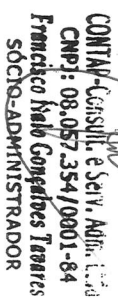 CONTAP Consult. e Serv. Adm. Ltda
CNPJ: 08.057.354/0001-84
Francisco Ítalo Gonçalves Tavares
SÓCIO-ADMINISTRADOR